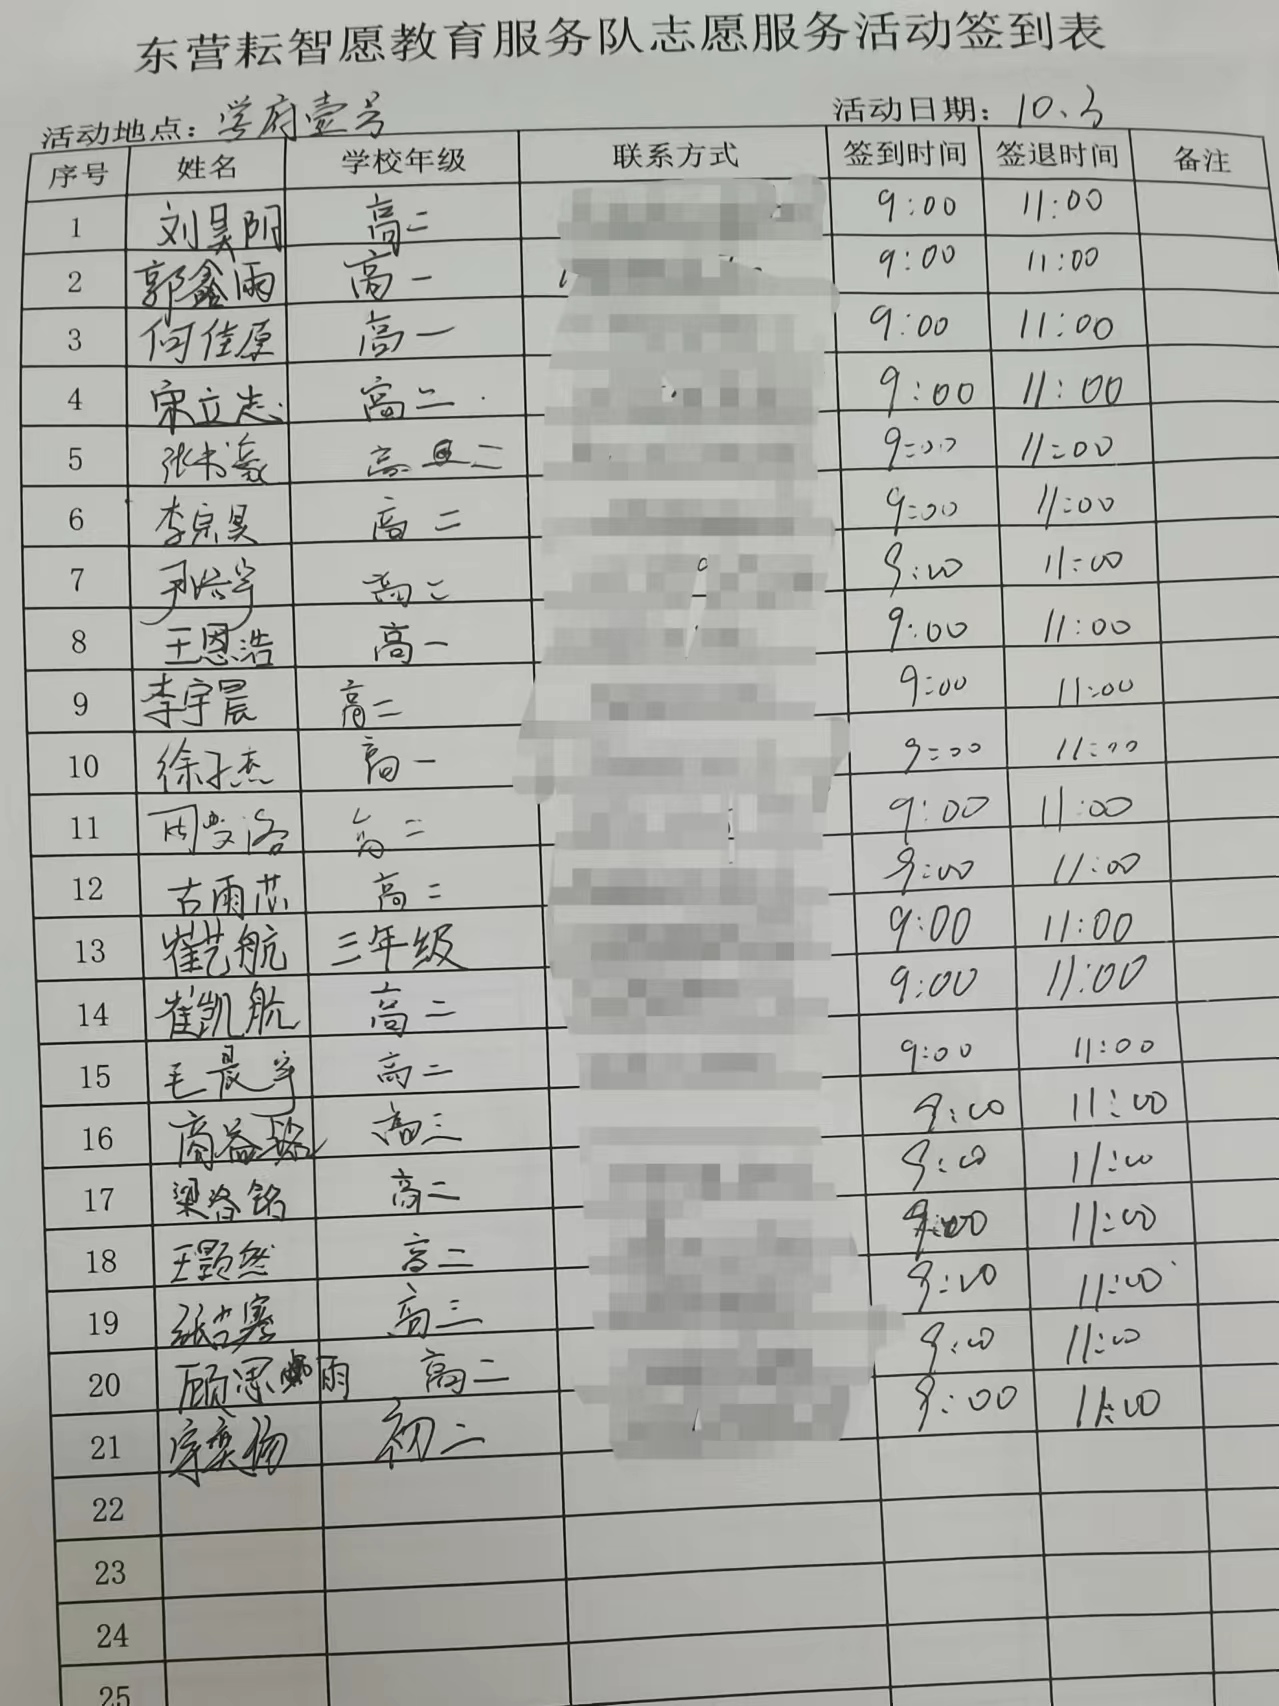 东营耘智愿教育服务队志愿服务活动签到表
活动地点：学府壹号 活动日期：10.3
序号 姓名 学校年级 联系方式 签到时间 签退时间 备注
1 刘昊阴 高二 9:00 11:00
2 郭鑫雨 高一 9:00 11:00
3 何佳原 高一 9:00 11:00
4 宋立志 高二 9:00 11:00
5 张书豪 高二 9:00 11:00
6 李宗昊 高二 9:00 11:00
7 高二 9:00 11:00
8 王恩浩 高一 9:00 11:00
9 李宇晨 高二 9:00 11:00
10 徐子杰 高一 9:00 11:00
11 高二 9:00 11:00
12 古雨芯 高二 9:00 11:00
13 崔艺航 三年级 9:00 11:00
14 崔凯航 高二 9:00 11:00
15 毛晨宇 高二 9:00 11:00
16 商益铭 高三 9:00 11:00
17 梁洛铭 高二 9:00 11:00
18 王颢然 高二 9:00 11:00
19 高三 9:00 11:00
20 顾思雨 高二 9:00 11:00
21 初二 9:00 11:00
22
23
24
25